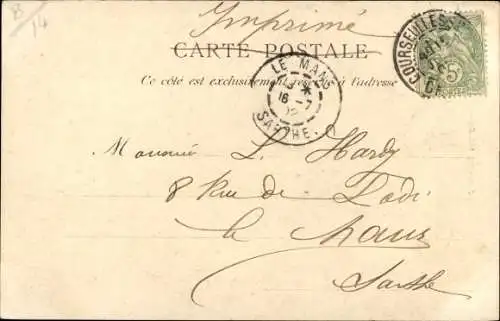 8
14
Imprimé
CARTE POSTALE
Ce côté est exclusivement réservé à l'adresse
LE MANS
16 -7
SARTHE
COURSEULLES-S
5
Monsieur L. Hardy
8 Rue de Lodi
Le Mans
Sarthe